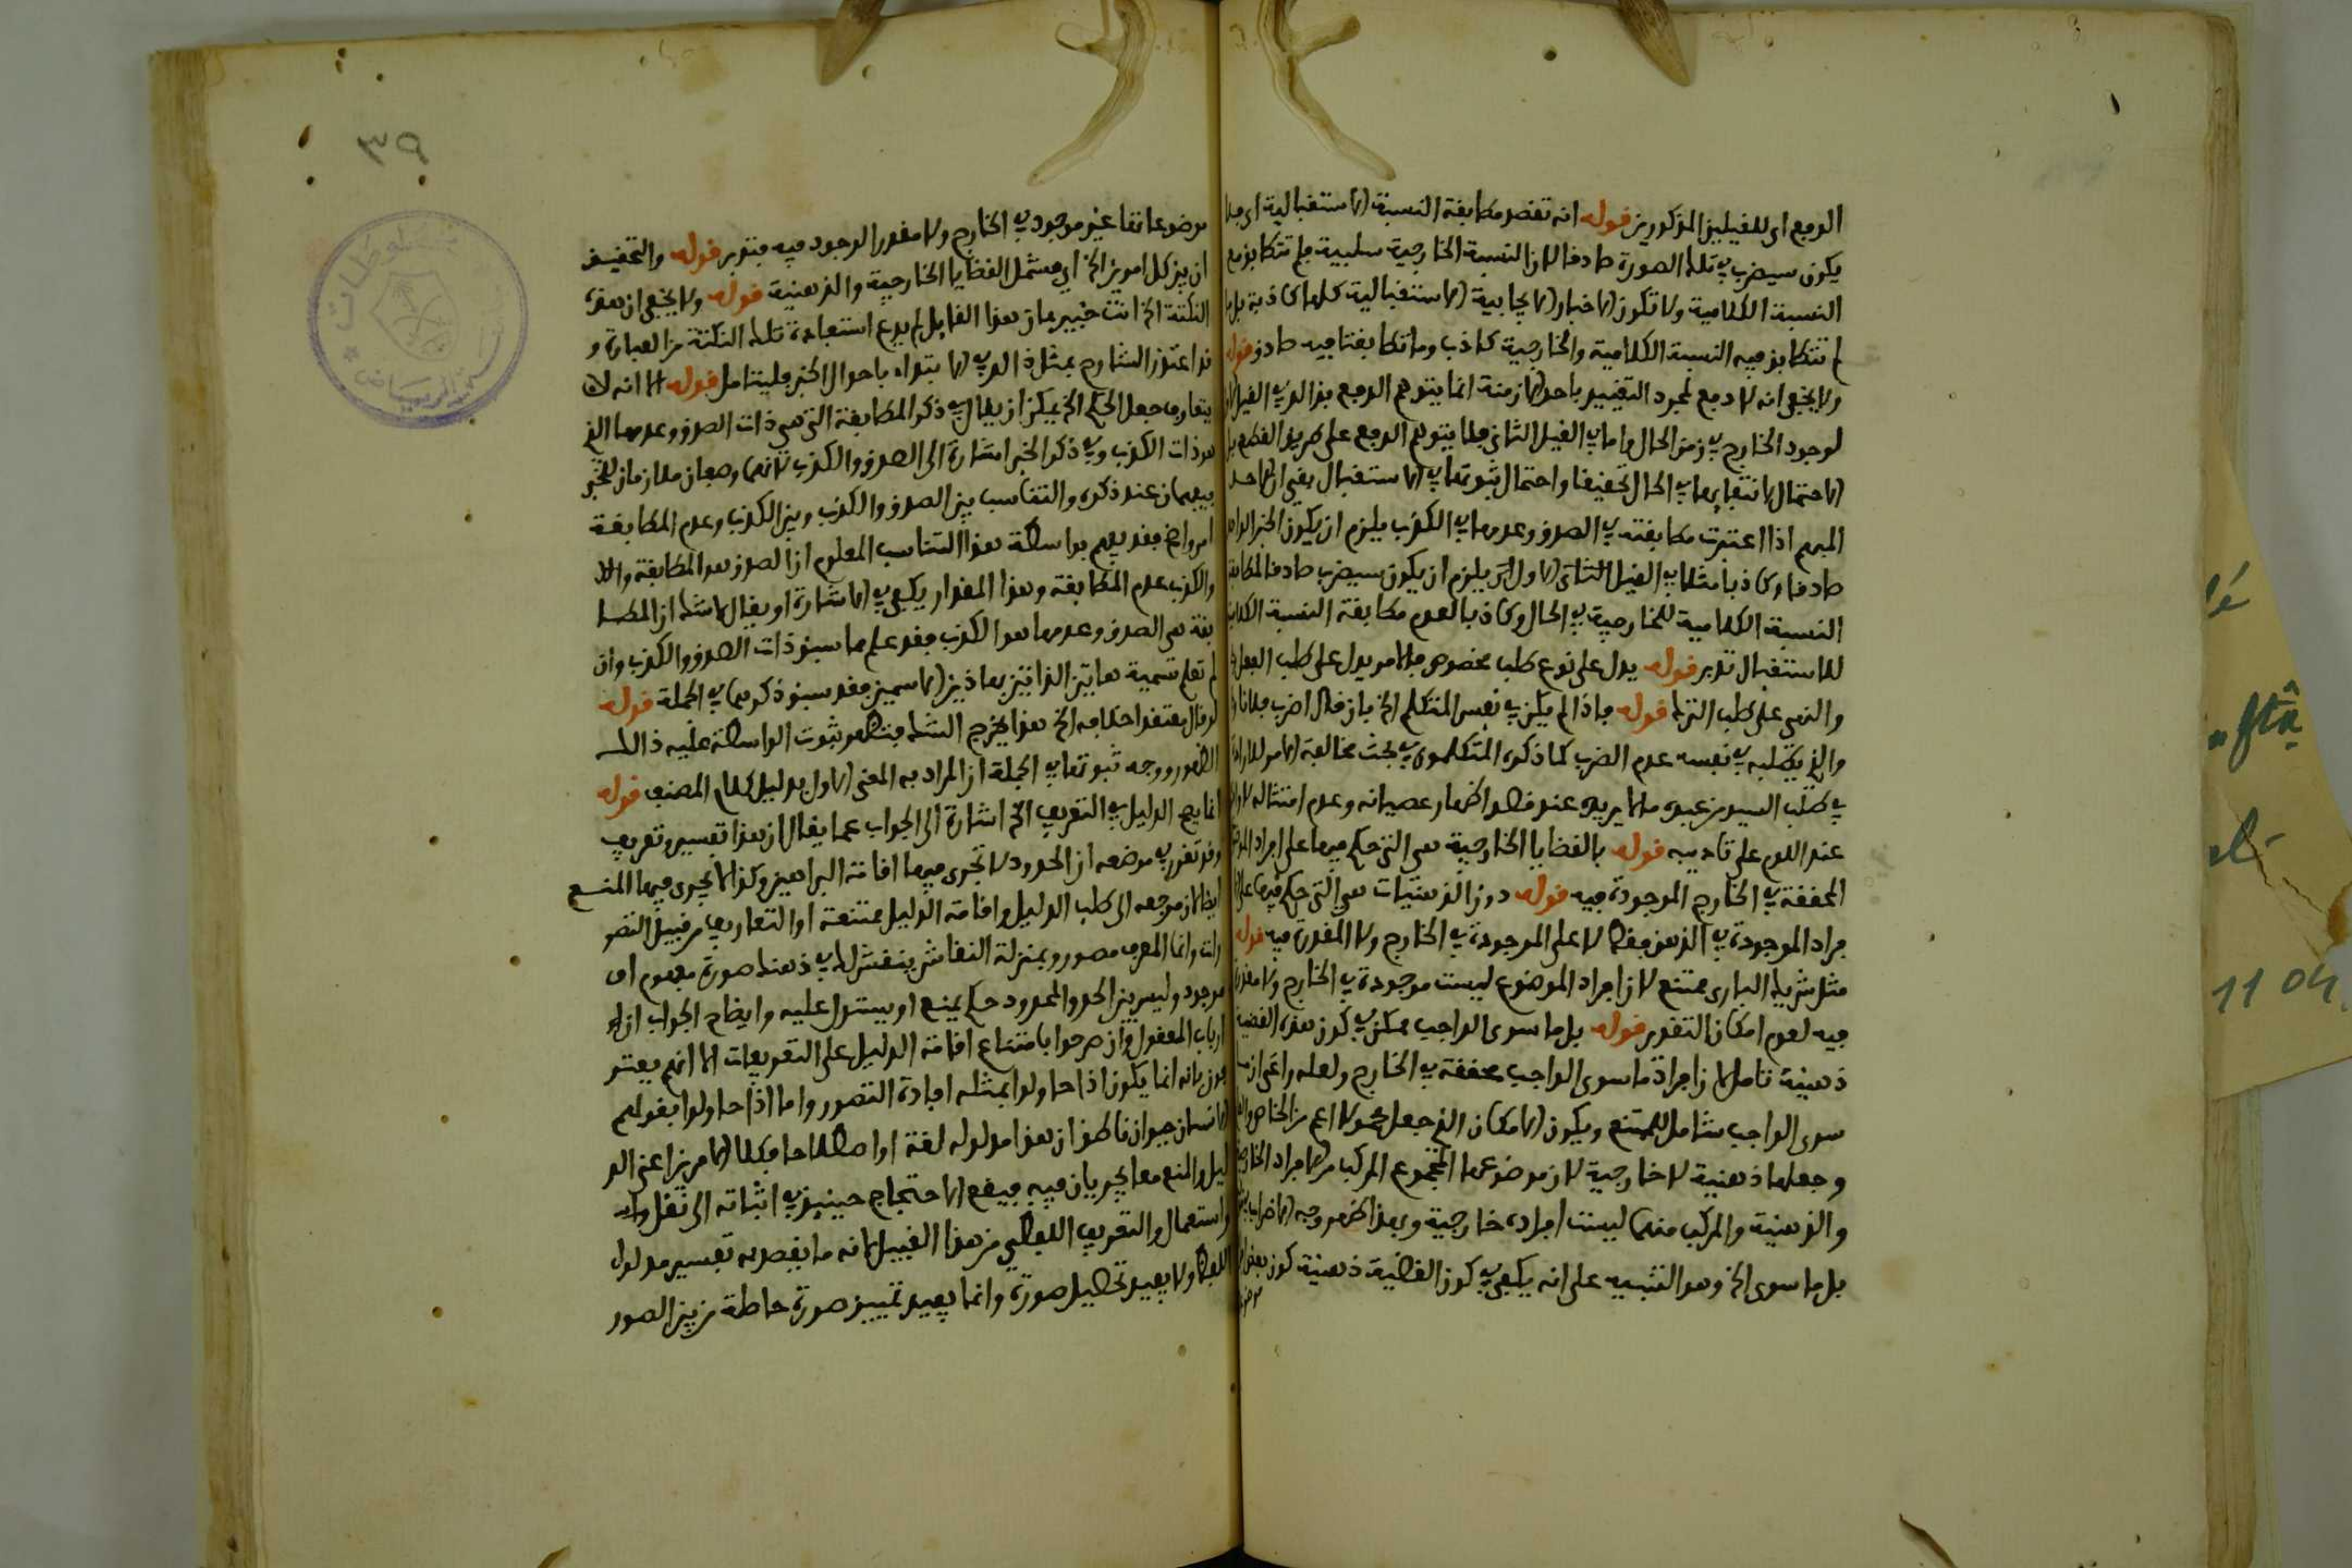 الدفع اى للقيلين المذكورين قوله انه تقصد مطابقة النسبة الاستقبالية اى فلا
يكون سيضرب في تلك الصورة صادقا لان النسبة الخارجية سلبية فلم تتطابق مع
النسبة الكلامية ولا تكون الاخبار الايجابية الاستقبالية كلها كاذبة بل ما
لم تتطابق فيه النسبة الكلامية والخارجية كاذب وما تطابقتا فيه صادق قوله
ولا يخفى انه لا دفع لمجرد التقييد باحد الازمنة انما يتوهم الدفع بذلك في القيل
لوجود الخارج في زمن الحال واما في القيل الثاني فلا يتوهم الدفع على طريق القطع بل
الاحتمال لانتفائها في الحال تحقيقا واحتمال ثبوتها في الاستقبال بقي ان احد
المبهم اذا اعتبرت مطابقته في الصدق وعدمها في الكذب فيلزم ان يكون الخبر الواحد
صادقا وكاذبا مثلا في القيل الثاني الاول يلزم ان يكون سيضرب صادقا لمطابقة
النسبة الكلامية للخارجية في الحال وكاذبا لعدم مطابقة النسبة الكلامية
للاستقبال تدبر قوله يدل على نوع طلب مخصوص فالامر يدل على طلب الفعل
والنهي على طلب الترك قوله فاذا لم يكن في نفس المتكلم الخ بان قال اضرب فلانا
والذي يطلبه في نفسه عدم الضرب كما ذكره المتكلمون في بحث مخالفة الامر للارادة
في طلب السيد من عبده ما لا يريده عند قصد اظهار عصيانه وعدم امتثاله
عند اللوم على تاديبه قوله بالقضايا الخارجية هي التي حكم فيها على افراد الموضوع
المحققة في الخارج الموجودة فيه قوله دون الذهنيات هي التي حكم فيها على
افراد الموجودة في الذهن فقط لا على الموجودة في الخارج ولا المقدرة فيه قوله
مثل شريك البارى ممتنع لان افراد الموضوع ليست موجودة في الخارج ولا مقدرة
فيه لعدم امكان التقدير قوله بل ما سوى الواجب ممكن في كون هذه القضية
ذهنية تامل لان افراد ما سوى الواجب محققة في الخارج ولعله راعى ان ما
سوى الواجب شامل للممتنع ويكون الامكان الذي جعل محمولا اعم من الخاص والعام
وجعلها ذهنية لا خارجية لان موضوعها المجموع المركب من الافراد الخارجية
والذهنية والمركب منهما ليست افراده خارجية وبهذا ظهر وجه الاضراب بقوله
بل ما سوى الخ وهو التنبيه على انه يكفي في كون القضية ذهنية كون بعض
موضو
٣٩
موضوعاتها غير موجود في الخارج ولا مقدر الوجود فيه فتدبر قوله والتحقيق
ان بين كل امرين الخ اى فيشمل القضايا الخارجية والذهنية قوله ولا يخفى ان هذه
النكتة الخ انت خبير بان هذا القايل لم يدع استفادة تلك النكتة من العبارة و
قد اعتذر الشارح بمثل ذلك في الابتداء باحوال الخبر فليتامل قوله الا انه لا
يتعارف جعل الحكم الخ يمكن ان يقال في ذكر المطابقة التي هي ذات الصدق وعدمها الذي
هو ذات الكذب وفي ذكر الخبر اشارة الى الصدق والكذب لانهما وصفان ملازمان للخبر
يفهمان عند ذكره والتناسب بين الصدق والكذب وبين الكذب وعدم المطابقة
امر واضح فقد يفهم بواسطة هذا التناسب المعلوم ان الصدق هو المطابقة و
والكذب عدم المطابقة وهذا المقدار يكفي في الاشارة او يقال لا شك ان المطا
بقة هي الصدق وعدمها هو الكذب فقد علم مما سبق ذات الصدق والكذب وان
لم تعلم تسمية هاتين الذاتين بهاذين الاسمين فقد سبق ذكرهما في الجملة قوله
لو قال يعتقد احكامه الخ هذا يخرج الشك فتظهر ثبوت الواسطة عليه ذلك
الظهور ووجه ثبوتها في الجملة ان المراد به المعنى الاول بدليل كلام المصنف قوله
انما يصح الدليل في التعريف الخ اشارة الى الجواب عما يقال ان هذا تفسير وتعريف
وقد تقرر في موضعه ان الحدود لا تجرى فيها اقامة البراهين وكذا لا يجرى فيها المنع
ايضا لان مرجعه الى طلب الدليل واقامة الدليل ممتنعة او التعاريف من قبيل التصو
رات وانما المعرف مصور وبمنزلة النقاش ينقش لك في ذهنك صورة مفهوم او
موجود وليس بين الحد والمحدود حكم يمنع او يستدل عليه وايضاح الجواب ان
ارباب المعقول وان صرحوا بامتناع اقامة الدليل على التعريفات الا انهم يعتر
فون بانه انما يكون اذا حاولوا بمثله افادة التصور واما اذا حاولوا بقولهم
الانسان حيوان ناطق ان هذا مدلوله لغة او اصطلاحا فكلا الامرين اعني الد
ليل والمنع معا يجريان فيه فيقع الاحتجاج حينئذ في اثباته الى نقل و
استعمال والتعريف اللفظي من هذا القبيل لانه ما يقصد به تفسير مدلول
اللفظ ولا يفيد تحصيل صورة وانما يفيد تمييز صورة حاصلة من بين الصور